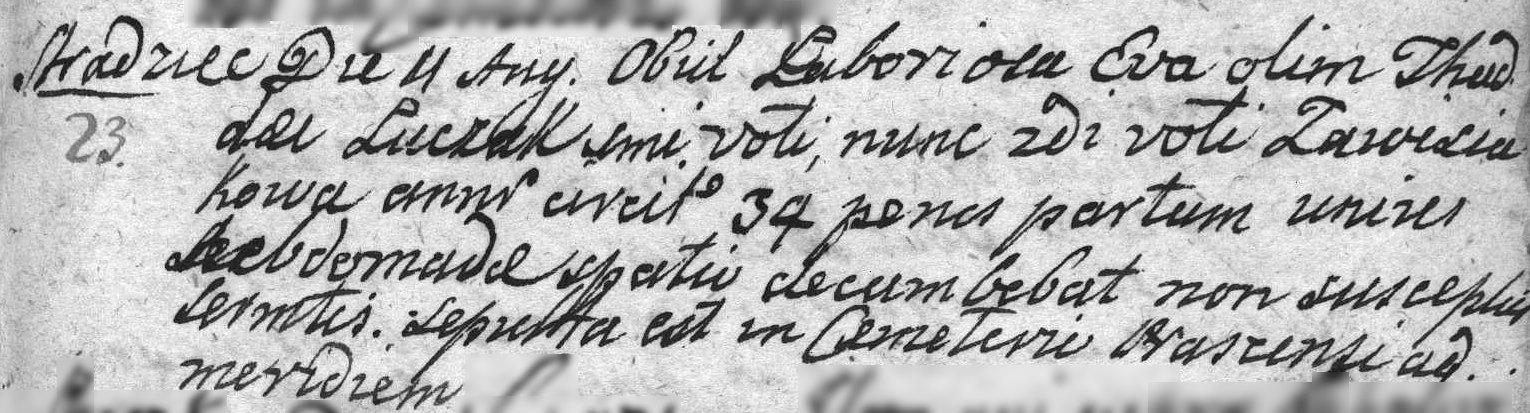 Stradziec Die 11 Aug. Obiit Laboriosa Eva olim Thad
23. dei Luczak 1mi voti, nunc 2di voti Zawisia
kowa annr circito 34 penes partum unius
hebdomadae spatio decumbebat non susceptis
Sermtis. sepulta est in Cemeterio Brascensi ad
meridiem